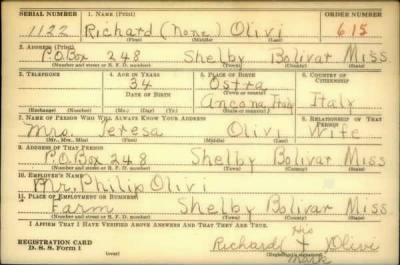 SERIAL NUMBER 1. NAME (Print) ORDER NUMBER
1122 Richard (none) Olivi 615
(First) (Middle) (Last)
2. ADDRESS (Print)
P.O. Box 248 Shelby Bolivar Miss
(Number and street or R. F. D. number) (Town) (County) (State)
3. TELEPHONE 4. AGE IN YEARS 5. PLACE OF BIRTH 6. COUNTRY OF CITIZENSHIP
34 Ostra
DATE OF BIRTH (Town or county)
Ancona, Italy Italy
(Exchange) (Number) (Mo.) (Day) (Yr.) (State or country)
7. NAME OF PERSON WHO WILL ALWAYS KNOW YOUR ADDRESS 8. RELATIONSHIP OF THAT PERSON
Mrs. Teresa Olivi Wife
(Mr., Mrs., Miss) (First) (Middle) (Last)
9. ADDRESS OF THAT PERSON
P.O. Box 248 Shelby Bolivar Miss
(Number and street or R. F. D. number) (Town) (County) (State)
10. EMPLOYER'S NAME
Mr. Philip Olivi
11. PLACE OF EMPLOYMENT OR BUSINESS
Farm Shelby Bolivar Miss
(Number and street or R. F. D. number) (Town) (County) (State)
I AFFIRM THAT I HAVE VERIFIED ABOVE ANSWERS AND THAT THEY ARE TRUE.
REGISTRATION CARD His
D. S. S. Form 1 (over) Richard X Olivi
(Registrant's signature)
Mark